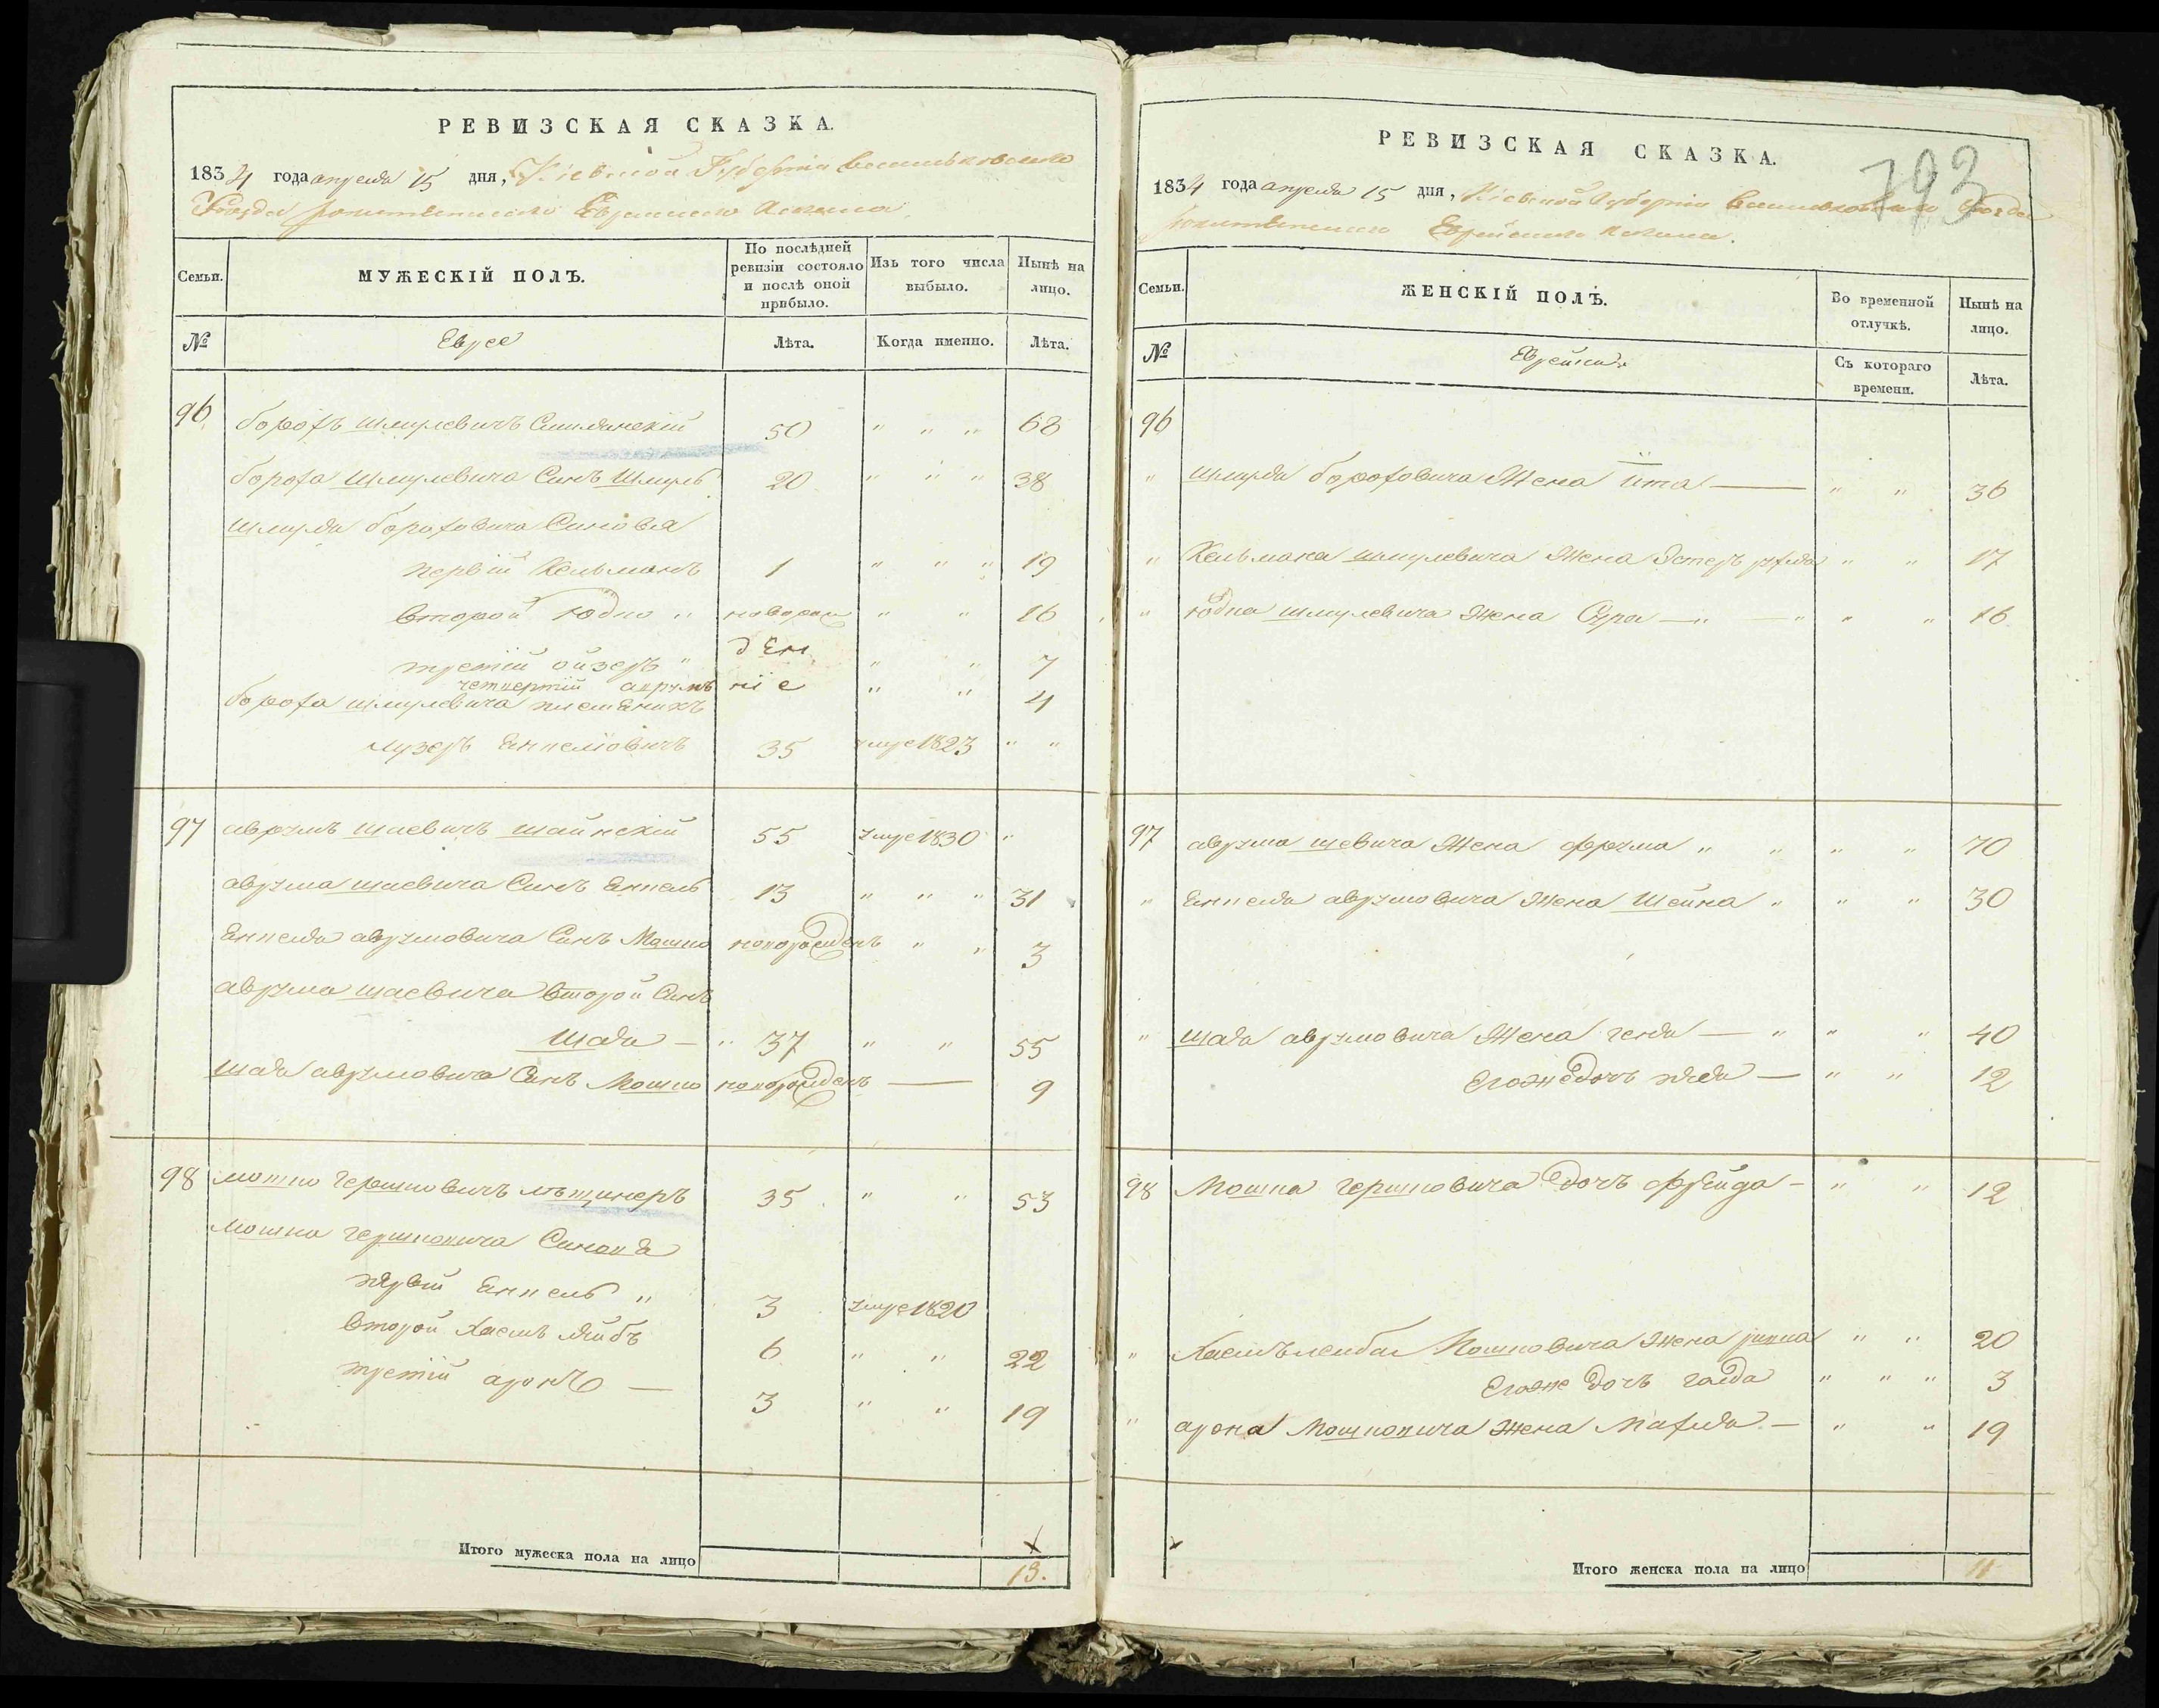 РЕВИЗСКАЯ СКАЗКА.
1834 года апреля 15 дня, Кіевской Губерніи Васильковского
Уезда Еврейского
Семьи.
МУЖЕСКІЙ ПОЛЪ.
По послѣдней ревизіи состояло и послѣ оной прибыло.
Изъ того числа выбыло.
Нынѣ на лицо.
№
Еврее
Лѣта.
Когда именно.
Лѣта.
96 борохъ шмулевичъ 50 " " " 68
бороха шмулевича Синъ Шмуль 20 " " " 38
шмуля бороховича Синовя
первій Кельманъ 1 " " " 19
второй Юдко " новорож " " 16
третій ойзеръ " ден " " 7
четвертій аврумъ ніе " " 4
бороха шмулевича племеникъ
лузеръ 35 умре 1823 " "
97 аврумъ шаевичъ шаинскій 55 умре 1830 "
аврума шаевича Синъ Енкель 13 " " " 31
Енкеля аврумовича Синъ Мошко новорожденъ " " 3
аврума шаевича второй Синъ
Шая — " 37 " " 55
шая аврумовича Синъ Мошко новорожденъ — 9
98 мошко гершковичъ 35 " " 53
мошка гершковича Синовя
первій Енкель " 3 умре 1820
второй Хаемъ лейбъ 6 " " 22
третій аронъ — 3 " " 19
Итого мужеска пола на лицо
13.
193
РЕВИЗСКАЯ СКАЗКА.
1834 года апреля 15 дня, Кіевской Губерніи Васильковского Уезда
Еврейского
Семьи.
ЖЕНСКІЙ ПОЛЪ.
Во временной отлучкѣ.
Нынѣ на лицо.
№
Еврейки
Съ котораго времени.
Лѣта.
96
" шмуля бороховича Жена ита — " " 36
" Кельмана шмулевича Жена Эстеръ рухля " " 17
" Юдка шмулевича Жена Сура — " — " " " 16
97 аврума шевича Жена фрума " " " " 70
" Енкеля аврумовича Жена Шейна " " " 30
" шая аврумовича Жена геня — " " " 40
Егоже дочъ — " " 12
98 Мошка гершковича дочъ фрейда — " " 12
" Хаемълейба Мошковича Жена ривка " " 20
Егоже дочъ " " " 3
" арона Мошковича Жена Махля — " " 19
Итого женска пола на лицо
11